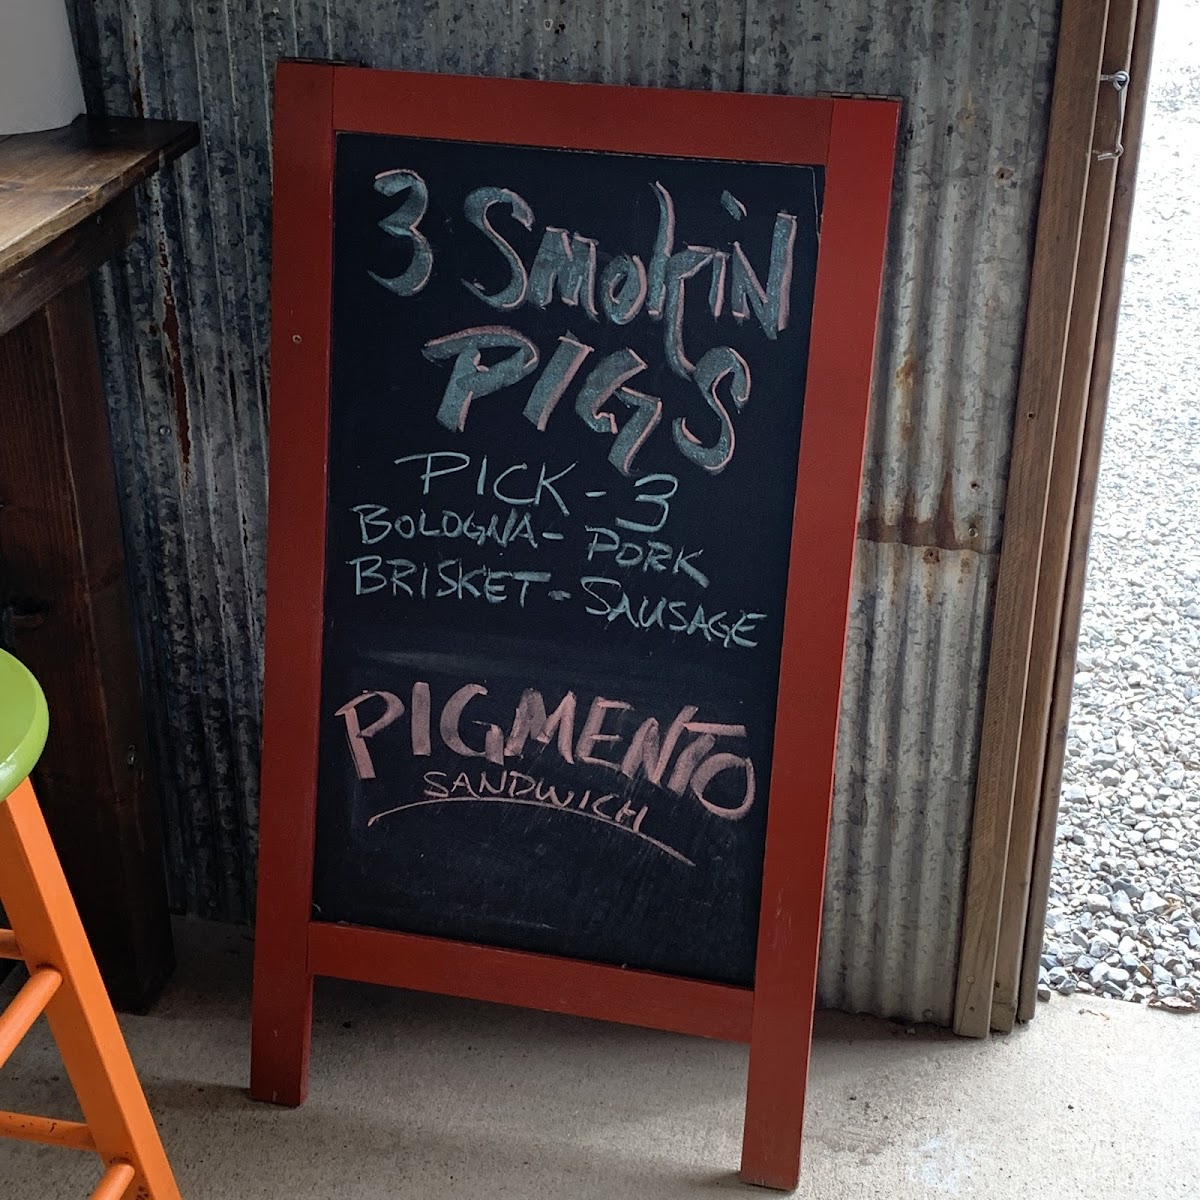 3 SMOKIN
PIGS
PICK-3
BOLOGNA- PORK
BRISKET - SAUSAGE
PIGMENTO
SANDWICH